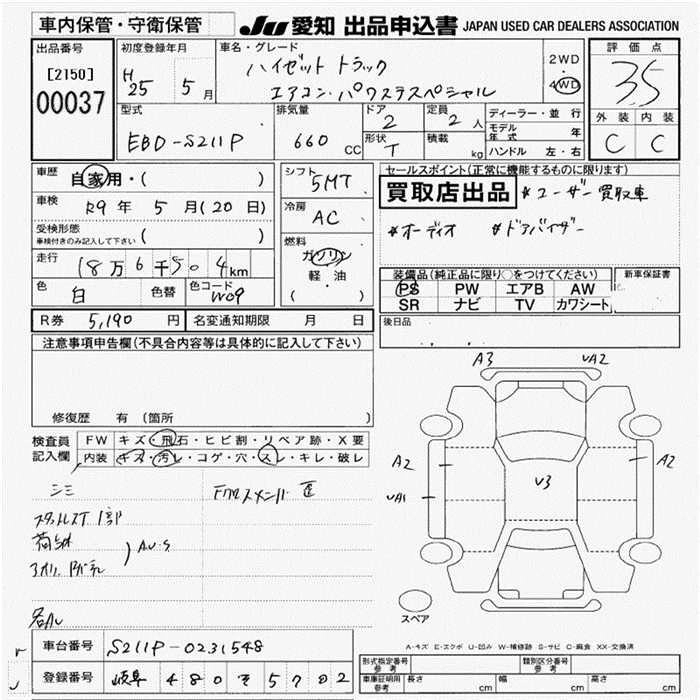 車内保管・守衛保管 JU 愛知 出品申込書 JAPAN USED CAR DEALERS ASSOCIATION
出品番号
[2150]
00037
初度登録年月
H25 5月
車名・グレード
ハイゼット トラック
エアコン・パワステスペシャル
2WD
・
4WD
評価点
3.5
外装 内装
C C
型式
EBD-S211P
排気量
660 CC
ドア
2
形状
T
定員
2 人
積載
kg
ディーラー・並行
モデル年式 年
ハンドル 左・右
車歴 自家用・( )
車検 R9年 5月(20日)
受検形態
車検付きのみ記入して下さい ( )
走行 18万6千504km
色 白 色替 色コード W09
シフト
5MT
冷房
AC
燃料
ガソリン
軽油
( )
セールスポイント(正常に機能するものに限ります)
買取店出品 *ユーザー買取車
*オーディオ *ドアバイザー
装備品(純正品に限り〇をつけてください) 新車保証書
PS PW エアB AW
SR ナビ TV カワシート
R券 5,190円 名変通知期限 月 日
後日品
注意事項申告欄(不具合内容等は具体的に記入して下さい)
修復歴 有 (箇所 )
検査員記入欄
FW キズ・飛石・ヒビ割・リペア跡・X要
内装 キズ・汚レ・コゲ・穴・スレ・キレ・破レ
シミ
Fクロスメンバー歪
スタッドレスT 1部
荷台
A,U,S
アオリ
各所
A3 UA2
A2 A2
UA1 U3
スペア
A-キズ E-エクボ U-凹み W-補修跡 S-サビ C-腐食 XX-交換済
車台番号 S211P-0231548
登録番号 岐阜 480 そ 5702
形式指定番号 参考 類別区分番号 参考
車庫証明用 参考 長さ cm 幅 cm 高さ cm